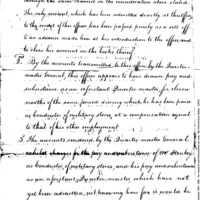 through the same channel on the consideration above stated.
The only account, which has been admitted directly at this office
to the credit of this officer has been passed purely as a sett off
to an advance made him at his introduction to the office, and
to close his account on the books thereof.
By the accounts transmitted to this office by the Paymaster
General, this officer appears to have drawn pay and
subsistance as an assistant Paymaster for eleven
months of the same period during which he has been paid
as Conductor of military stores, at a compensation equal
to that of his other employment
The accounts rendered by the Paymaster General
exhibit charges for the pay and subsistance of Mr.
as Conductor of military stores, and his pay and subsistance
as an assistant Paymaster which have not
yet been admitted, not knowing how far it would be